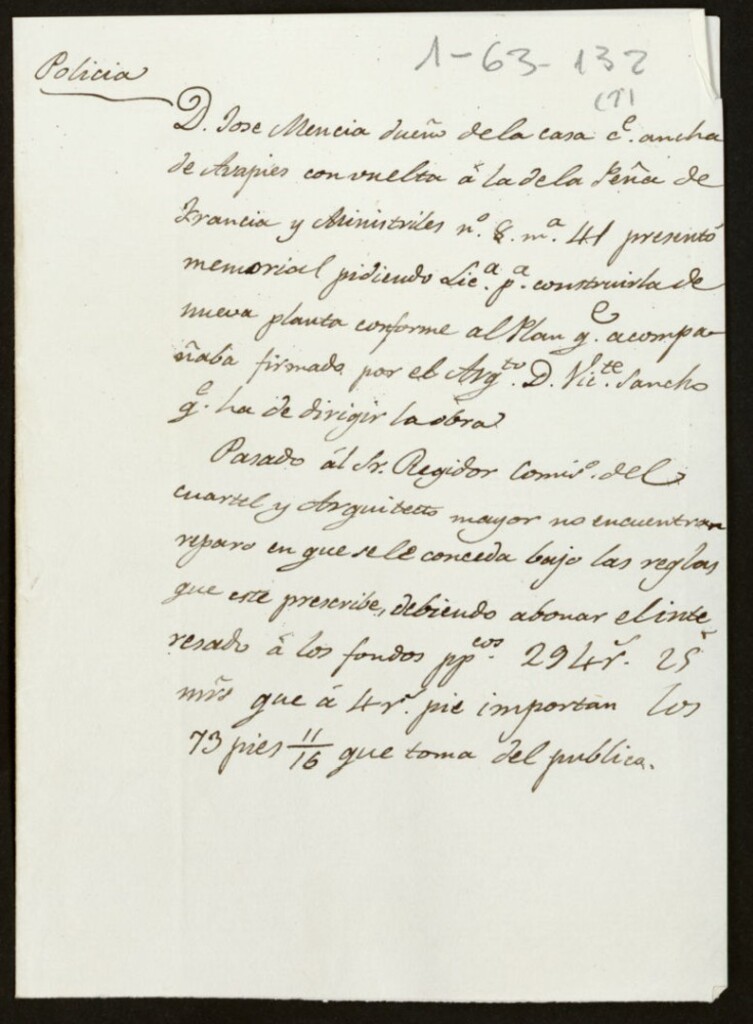 1-63-132
(71
Policia
D. Jose Mencia dueño de la casa c.e ancha
de Avapies con vuelta á la dela Peña de
Francia y Ministriles n.o 8. m.a 41 presentó
memorial pidiendo Lic.a p.a construirla de
nueva planta conforme al Plan q.e acompa-
ñaba firmado por el Arq.to D. Vic.te Sancho
q.e ha de dirigir la obra
Pasado ál Sr. Regidor Comis.o del
cuartel y Arquitecto mayor no encuentran
reparo en que se le conceda bajo las reglas
que este prescribe, debiendo abonar el inte-
resado á los fondos pp.cos 294 r.s 25
mrs que á 4 r.s pie importan los
73 pies 11/16 que toma del publica.